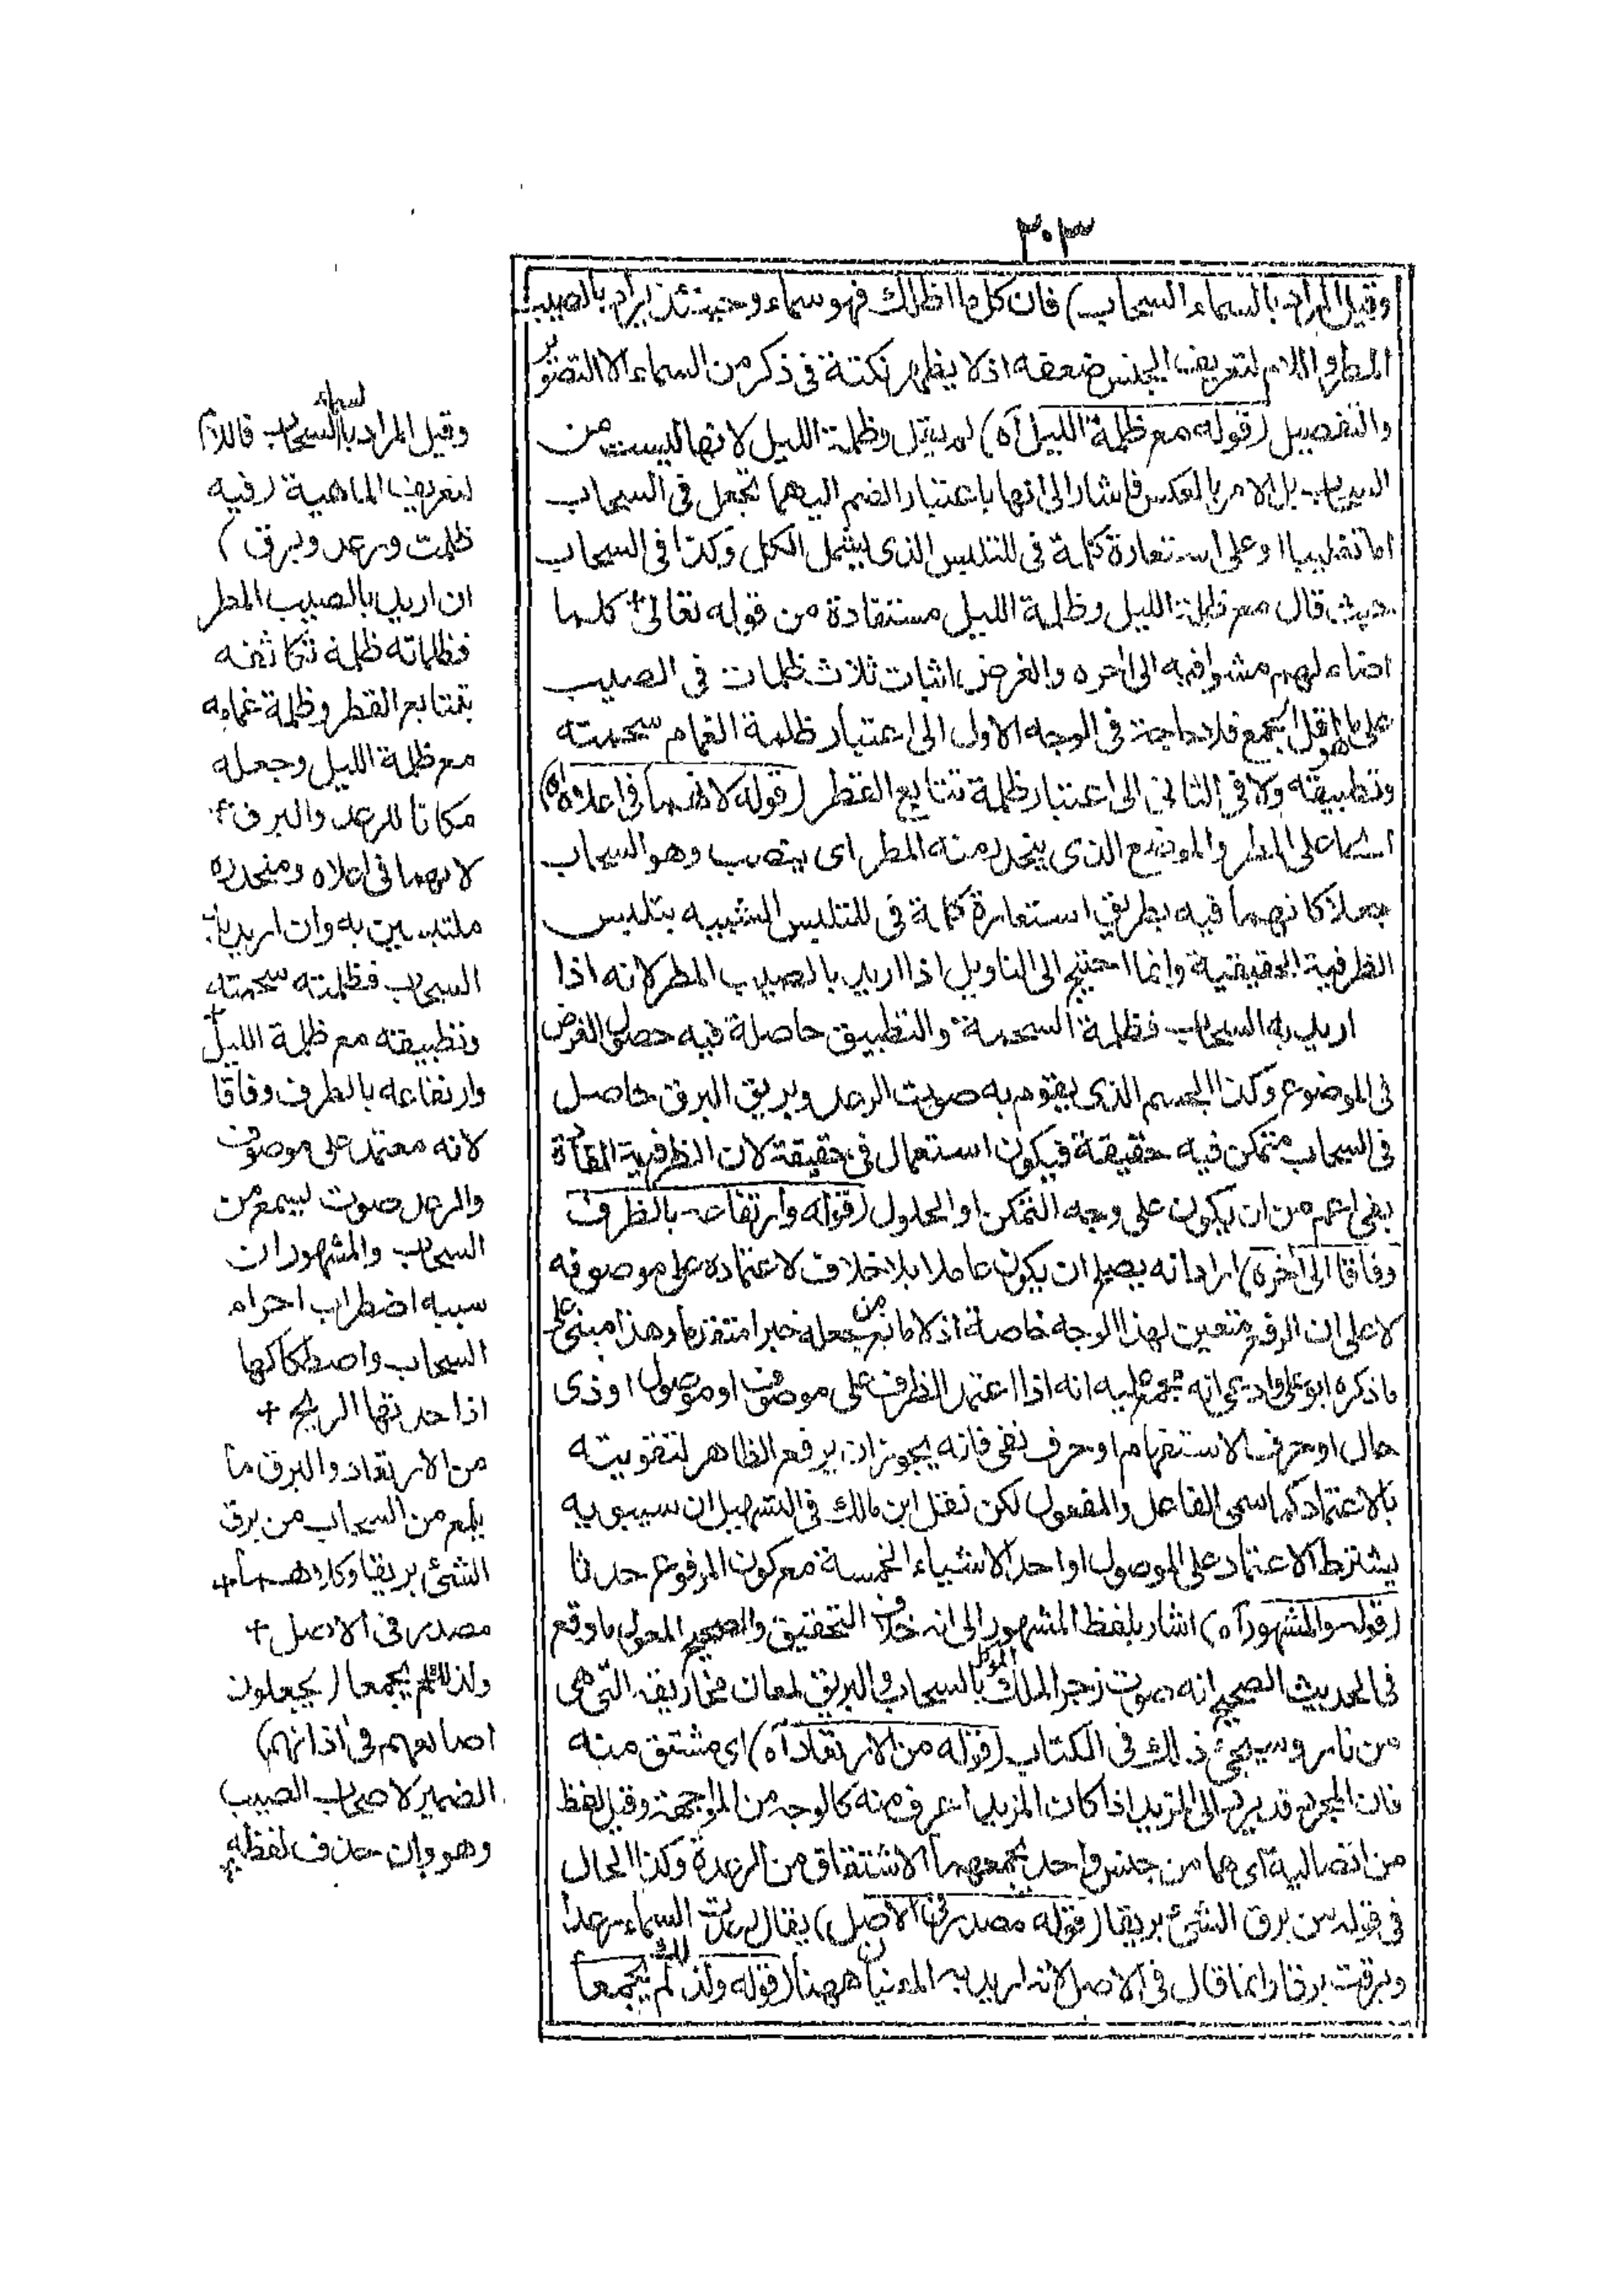 ٣٠٣
وقيل المراد بالسماء السحاب) فان كل ما اظلك فهو سماء وحينئذ يراد بالصيب
المطر واللام لتعريف الجنس ضعفه اذ لا يظهر نكتة فى ذكر من السماء الا التصوير
والتفصيل (قوله مع ظلمة الليل آه) لم يقل وظلمة الليل لانها ليست من
السحاب بل الامر بالعكس فاشار الى انها باعتبار الضم اليهما تجعل فى السحاب
اما تغليبا او على استعارة كلمة فى للتلبس الذى يشمل الكل وكذا فى السحاب
حيث قال مع ظلمة الليل وظلمة الليل مستفادة من قوله تعالى + كلما
اضاء لهم مشوا فيه الى اخره والغرض اثبات ثلاث ظلمات فى الصيب
على ما هو اقل الجمع فلا حاجة فى الوجه الاول الى اعتبار ظلمة الغمام سحمته
وتطبيقه ولا فى الثانى الى اعتبار ظلمة تتابع القطر (قوله لانهما فى اعلاه آه)
اى اعلى المطر والموضع الذى ينحدر منه المطر اى ينصب وهو السحاب
جعلا كانهما فيه بطريق استعارة كلمة فى للتلبس الشبيه بتلبس
الظرفية الحقيقية وانما احتيج الى التاويل اذا اريد بالصيب المطر لانه اذا
اريد به السحاب فظلمة السحمة والتطبيق حاصلة فيه حصول العرض
فى الموضوع وكذا الجسم الذى يقوم به صوت الرعد وبريق البرق حاصل
فى السحاب متمكن فيه حقيقة فيكون استعمال فى حقيقة لان الظرفية المفادة
بفى اعم من ان يكون على وجه التمكن او الحلول (قوله وارتفاعه بالظرف
وفاقا الى آخره) اراد انه يصلح ان يكون عاملا بلا خلاف لاعتماده على موصوفه
لا على ان الرفع متعين لهذا الوجه خاصة اذ لا مانع من جعله خبرا متقدما وهذا مبنى على
ما ذكره ابو على وادعى انه مجمع عليه انه اذا اعتمد الظرف على موصوف او موصول او ذى
حال او حرف الاستفهام او حرف نفى فانه يجوز ان يرفع الظاهر لتقويته
بالاعتماد كاسمى الفاعل والمفعول لكن نقل ابن مالك فى التسهيل ان سيبويه
يشترط الاعتماد على الموصول او احد الاشياء الخمسة مع كون المرفوع حدثا
(قوله والمشهور آه) اشار بلفظ المشهور الى انه خلاف التحقيق والصحيح المعول ما وقع
فى الحديث الصحيح انه صوت زجر الملك الموكل بالسحاب والبريق لمعان مخاريقه التى هى
من نار وسيجئ ذلك فى الكتاب (قوله من الارتعاد آه) اى مشتق منه
فان المجرد قد يرد الى المزيد اذا كان المزيد اعرف منه كالوجه من المواجهة وقيل لفظ
من اتصالية اى هما من جنس واحد يجمعهما الاشتقاق من الرعدة وكذا الحال
فى قوله من برق الشئ بريقا (قوله مصدر فى الاصل) يقال رعدت السماء رعدا
وبرقت برقا وانما قال فى الاصل لانه اريد به العينان ههنا (قوله ولذلك لم يجمعا
وقيل المراد بالسماء السحاب فاللام
لتعريف الماهية (فيه
ظلمت ورعد وبرق)
ان اريد بالصيب المطر
فظلماته ظلمة تكاثفه
بتتابع القطر وظلمة غمامه
مع ظلمة الليل وجعله
مكانا للرعد والبرق +
لانهما فى اعلاه ومنحدره
ملتبسين به وان اريد به
السحاب فظلمته سحمته
وتطبيقه مع ظلمة الليل +
وارتفاعه بالظرف وفاقا
لانه معتمد على موصوف
والرعد صوت يسمع من
السحاب والمشهور ان
سببه اضطراب اجرام
السحاب واصطكاكها
اذا حدتها الريح +
من الارتعاد والبرق ما
يلمع من السحاب من برق
الشئ بريقا وكلاهما +
مصدر فى الاصل +
ولذلك لم يجمعا (يجعلون
اصابعهم فى آذانهم)
الضمير لاصحاب الصيب
وهو وان حذف لفظه